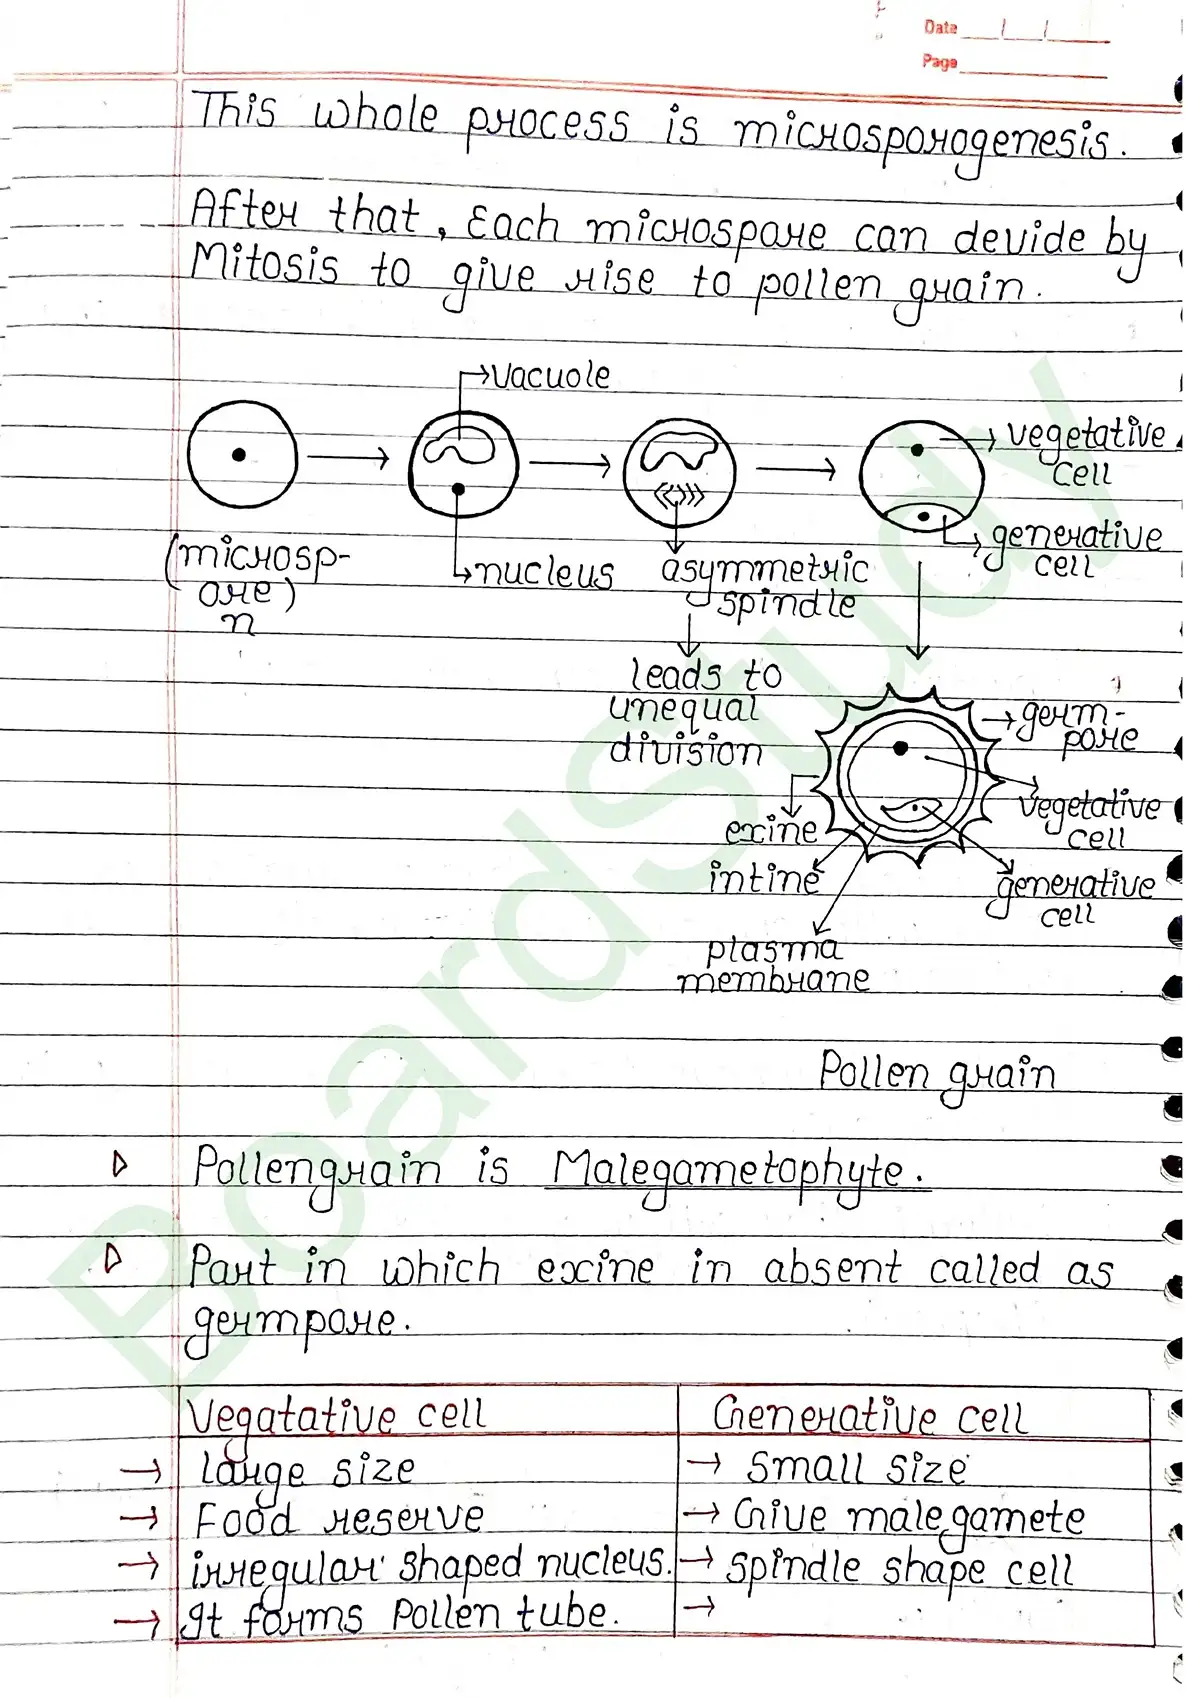 Date
Page
This whole process is microsporogenesis.
After that, Each microspore can devide by
Mitosis to give rise to pollen grain.
vacuole
vegetative
cell
generative
cell
(microsp-
ore)
n
nucleus
asymmetric
spindle
leads to
unequal
division
germ-
pore
vegetative
cell
exine
intine
generative
cell
plasma
membrane
Pollen grain
Pollengrain is Malegametophyte.
Part in which exine in absent called as
germpore.
Vegatative cell Generative cell
→ large size → small size
→ Food reserve → Give malegamete
→ irregular shaped nucleus. → spindle shape cell
→ It forms Pollen tube. →
BoardStudy